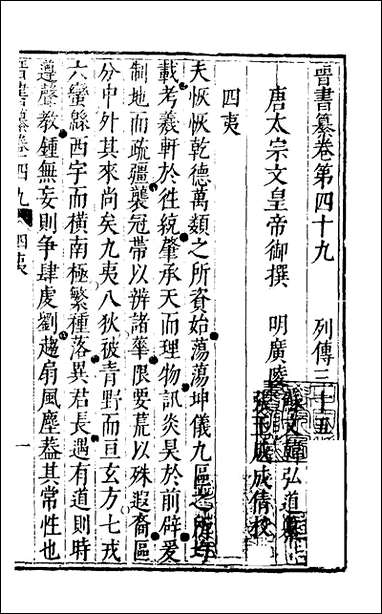 晉書纂卷第四十九　列傳三十五
唐太宗文皇帝御撰　明廣陵
弘道纂
張玉成成倩校
四夷
夫恢恢乾德萬類之所資始蕩蕩坤儀九區之所均
載考羲軒於徃統肇承天而理物訊炎昊於前辟爰
制地而疏疆襲冠帶以辨諸華限要荒以殊遐裔區
分中外其來尚矣九夷八狄被青野而亘玄方七戎
六蠻緜西宇而橫南極繁種落異君長遇有道則時
遵聲教鍾無妄則爭肆虔劉趨扇風塵葢其常性也
晉書纂　四九　四夷　一